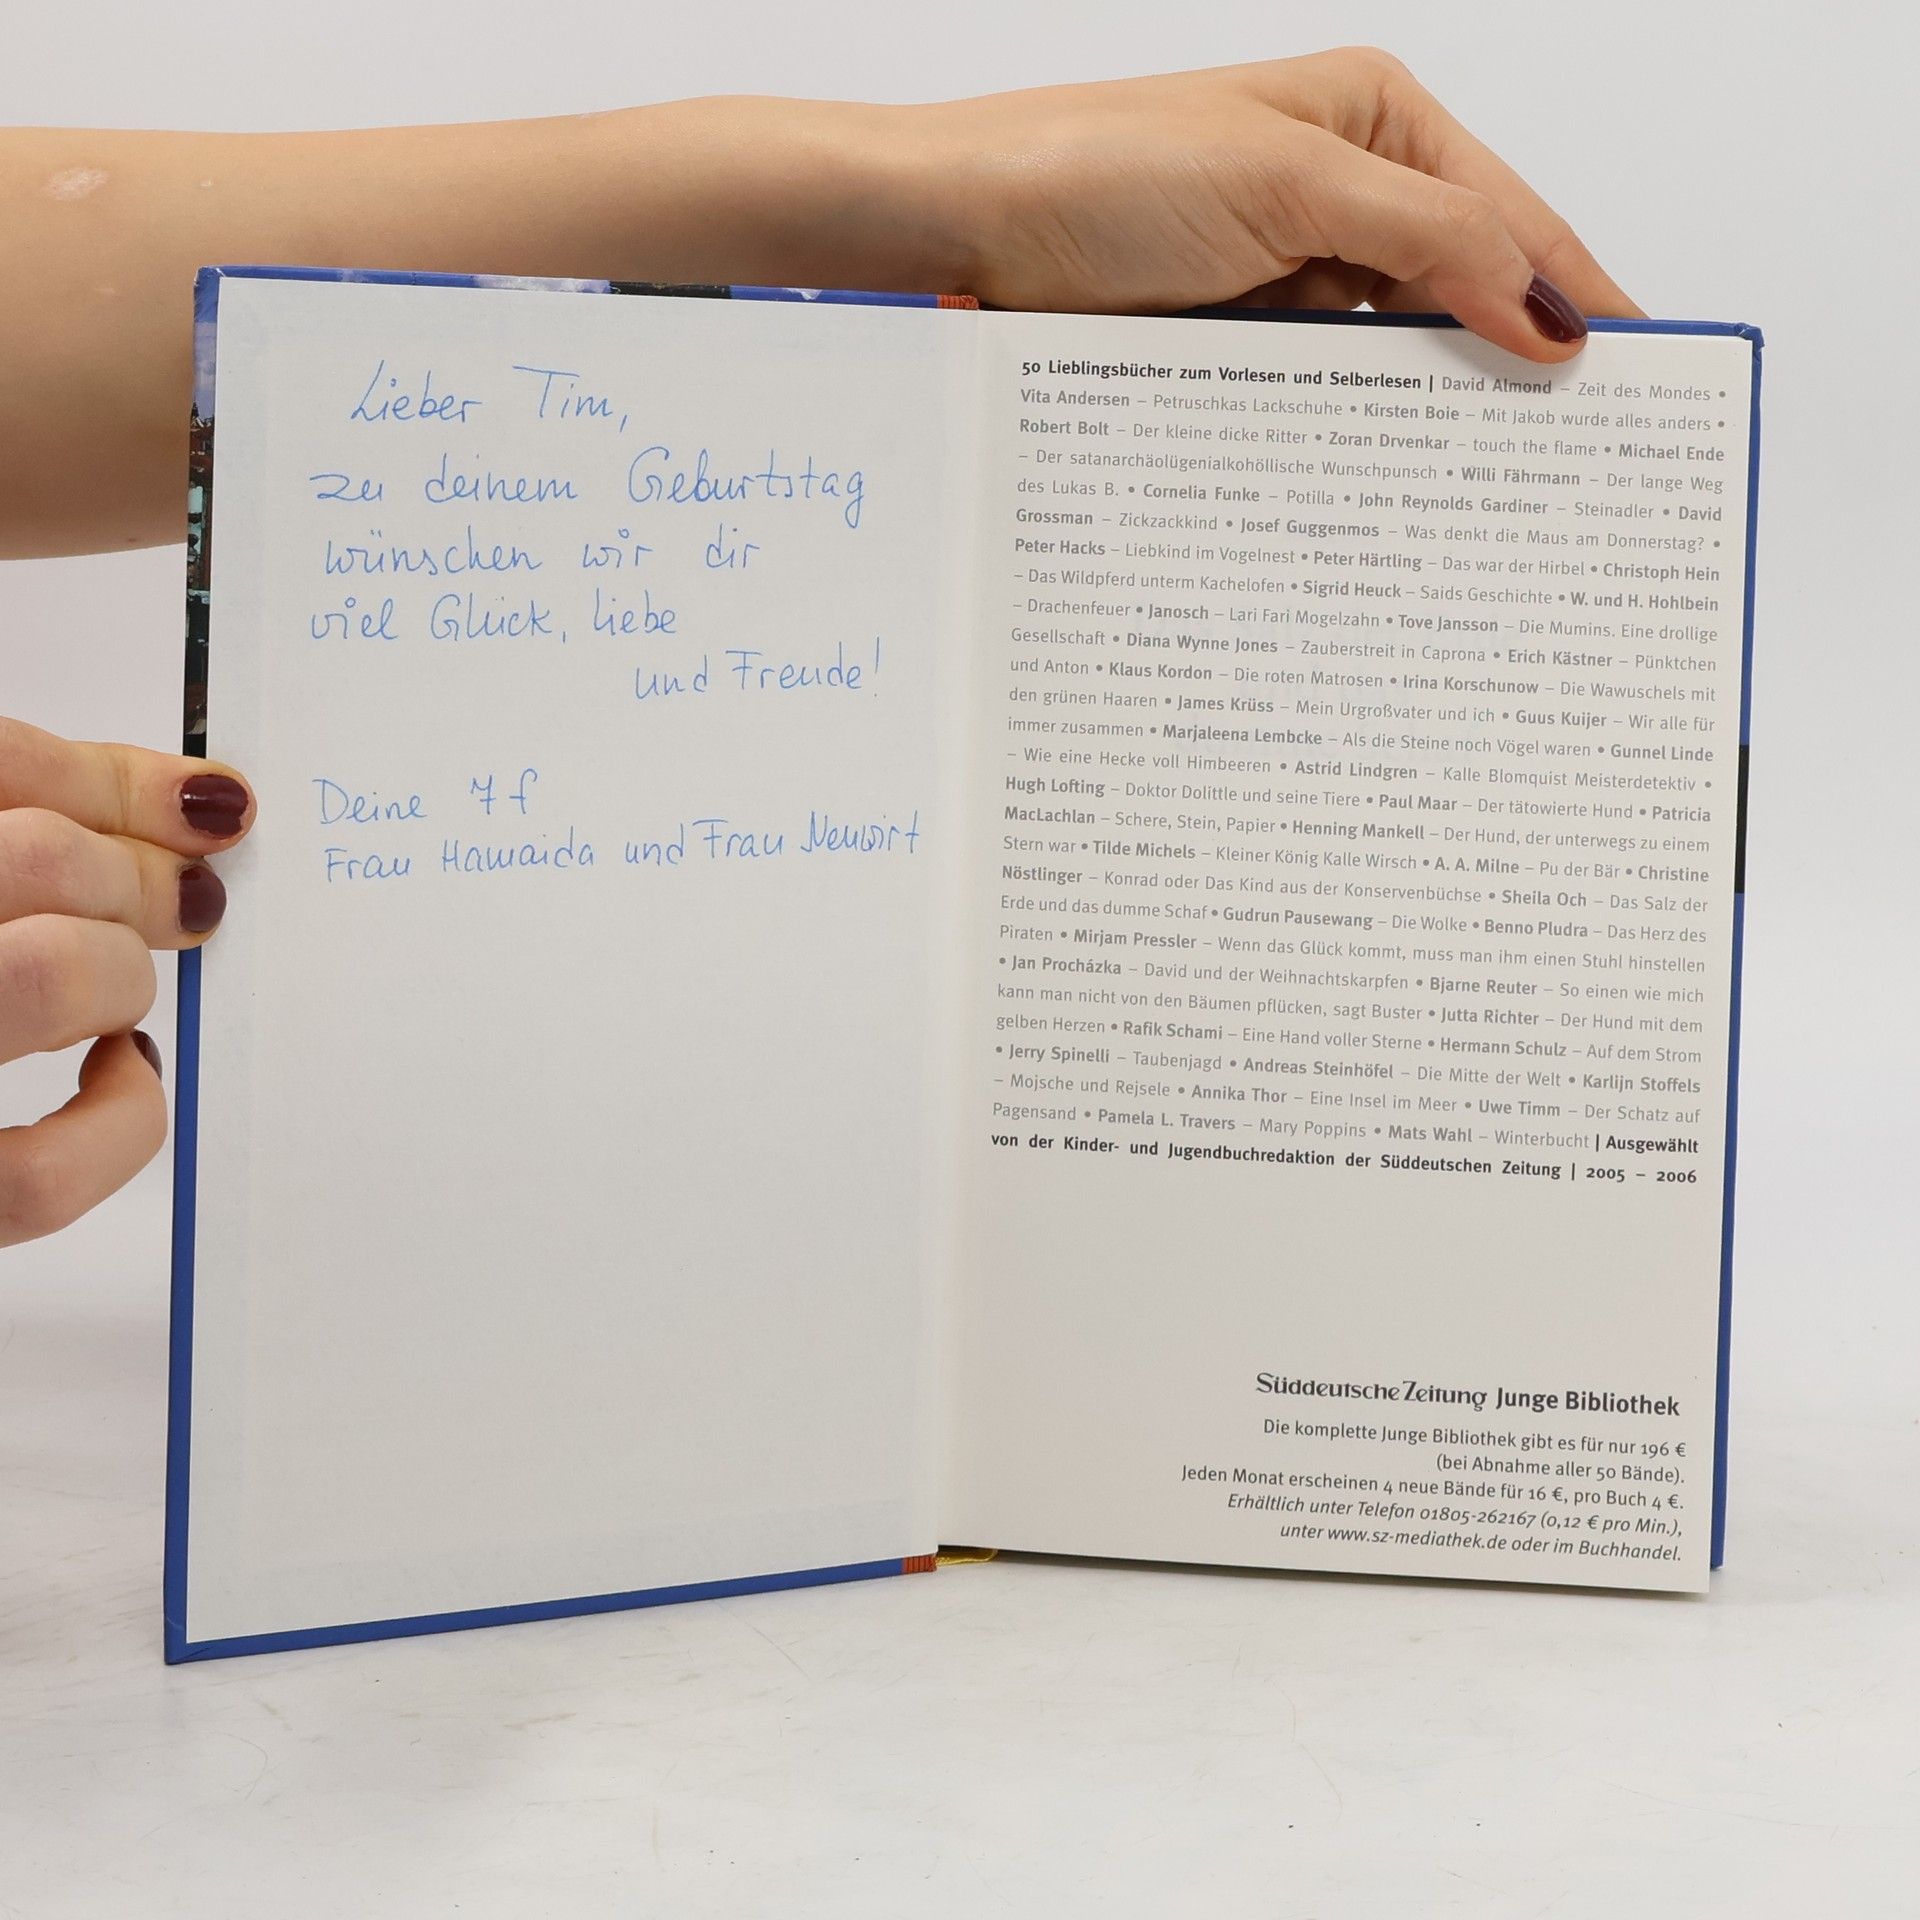 Lieber Tim,
zu deinem Geburtstag
wünschen wir dir
viel Glück, Liebe
und Freude!
Deine 7f
Frau Hamaida und Frau Neuwirt
50 Lieblingsbücher zum Vorlesen und Selberlesen | David Almond – Zeit des Mondes •
Vita Andersen – Petruschkas Lackschuhe • Kirsten Boie – Mit Jakob wurde alles anders •
Robert Bolt – Der kleine dicke Ritter • Zoran Drvenkar – touch the flame • Michael Ende
– Der satanarchäolügenialkohöllische Wunschpunsch • Willi Fährmann – Der lange Weg
des Lukas B. • Cornelia Funke – Potilla • John Reynolds Gardiner – Steinadler • David
Grossman – Zickzackkind • Josef Guggenmos – Was denkt die Maus am Donnerstag? •
Peter Hacks – Liebkind im Vogelnest • Peter Härtling – Das war der Hirbel • Christoph Hein
– Das Wildpferd unterm Kachelofen • Sigrid Heuck – Saids Geschichte • W. und H. Hohlbein
– Drachenfeuer • Janosch – Lari Fari Mogelzahn • Tove Jansson – Die Mumins. Eine drollige
Gesellschaft • Diana Wynne Jones – Zauberstreit in Caprona • Erich Kästner – Pünktchen
und Anton • Klaus Kordon – Die roten Matrosen • Irina Korschunow – Die Wawuschels mit
den grünen Haaren • James Krüss – Mein Urgroßvater und ich • Guus Kuijer – Wir alle für
immer zusammen • Marjaleena Lembcke – Als die Steine noch Vögel waren • Gunnel Linde
– Wie eine Hecke voll Himbeeren • Astrid Lindgren – Kalle Blomquist Meisterdetektiv •
Hugh Lofting – Doktor Dolittle und seine Tiere • Paul Maar – Der tätowierte Hund • Patricia
MacLachlan – Schere, Stein, Papier • Henning Mankell – Der Hund, der unterwegs zu einem
Stern war • Tilde Michels – Kleiner König Kalle Wirsch • A. A. Milne – Pu der Bär • Christine
Nöstlinger – Konrad oder Das Kind aus der Konservenbüchse • Sheila Och – Das Salz der
Erde und das dumme Schaf • Gudrun Pausewang – Die Wolke • Benno Pludra – Das Herz des
Piraten • Mirjam Pressler – Wenn das Glück kommt, muss man ihm einen Stuhl hinstellen
• Jan Procházka – David und der Weihnachtskarpfen • Bjarne Reuter – So einen wie mich
kann man nicht von den Bäumen pflücken, sagt Buster • Jutta Richter – Der Hund mit dem
gelben Herzen • Rafik Schami – Eine Hand voller Sterne • Hermann Schulz – Auf dem Strom
• Jerry Spinelli – Taubenjagd • Andreas Steinhöfel – Die Mitte der Welt • Karlijn Stoffels
– Mojsche und Rejsele • Annika Thor – Eine Insel im Meer • Uwe Timm – Der Schatz auf
Pagensand • Pamela L. Travers – Mary Poppins • Mats Wahl – Winterbucht | Ausgewählt
von der Kinder- und Jugendbuchredaktion der Süddeutschen Zeitung | 2005 – 2006
Süddeutsche Zeitung Junge Bibliothek
Die komplette Junge Bibliothek gibt es für nur 196 €
(bei Abnahme aller 50 Bände).
Jeden Monat erscheinen 4 neue Bände für 16 €, pro Buch 4 €.
Erhältlich unter Telefon 01805-262167 (0,12 € pro Min.),
unter www.sz-mediathek.de oder im Buchhandel.